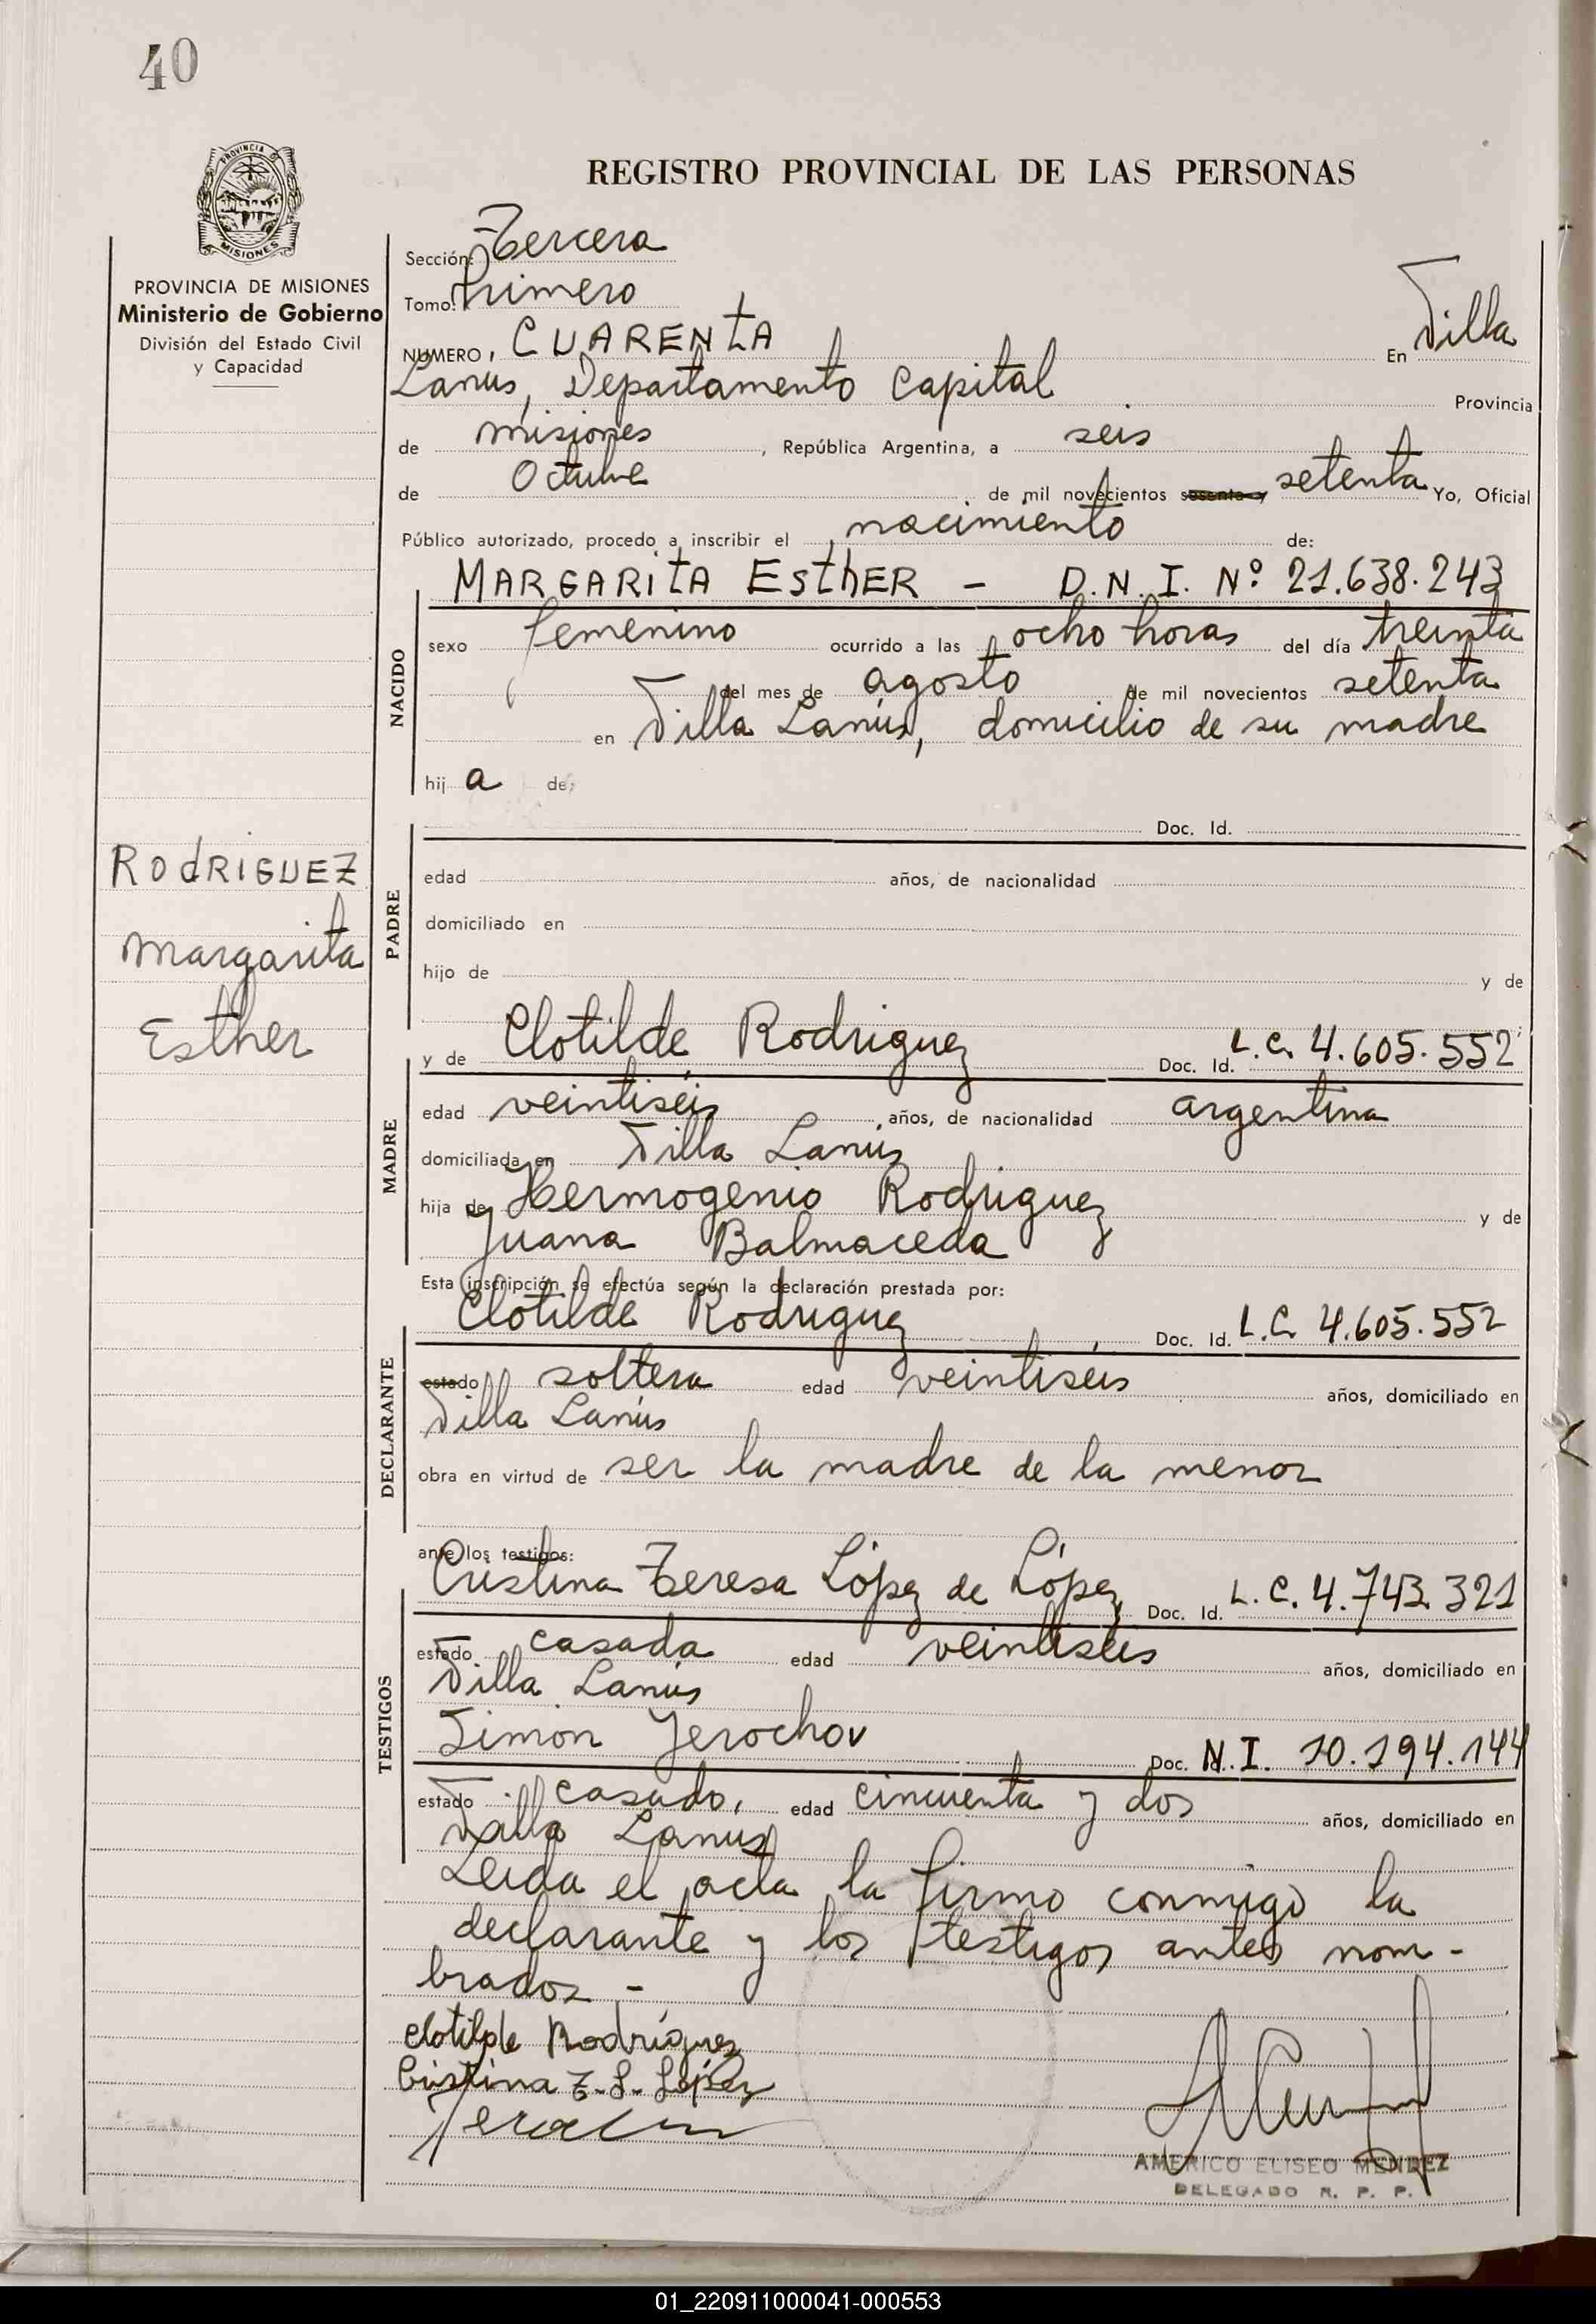 40
PROVINCIA DE
MISIONES
REGISTRO PROVINCIAL DE LAS PERSONAS
PROVINCIA DE MISIONES
Ministerio de Gobierno
División del Estado Civil
y Capacidad
Sección: Tercera
Tomo: Primero
NUMERO, CUARENTA En Villa
Lanus, Departamento Capital Provincia
de misiones, República Argentina, a seis
de Octubre de mil novecientos sesenta y setenta Yo, Oficial
Público autorizado, procedo a inscribir el nacimiento de:
NACIDO
MARGARITA EsthER - D.N.I. Nº 21.638.243
sexo femenino ocurrido a las ocho horas del día treinta
del mes de agosto de mil novecientos setenta
en Villa Lanús, domicilio de su madre
hij a de:
RODRIGUEZ
Margarita
Esther
PADRE
Doc. Id.
edad años, de nacionalidad
domiciliado en
hijo de y de
MADRE
y de Clotilde Rodriguez Doc. Id. L.C. 4.605.552
edad veintiséis años, de nacionalidad argentina
domiciliada en Villa Lanús
hija de Hermogenio Rodriguez y de
Juana Balmaceda
Esta inscripción se efectúa según la declaración prestada por:
DECLARANTE
Clotilde Rodriguez Doc. Id. L.C. 4.605.552
estado soltera edad veintiseis años, domiciliado en
Villa Lanús
obra en virtud de ser la madre de la menor
ante los testigos:
TESTIGOS
Cristina Teresa López de López Doc. Id. L.C. 4.743.321
estado casada edad veintiseis años, domiciliado en
Villa Lanús
Simon Jerochov Doc. N.I. 10.194.144
estado casado, edad cincuenta y dos años, domiciliado en
Villa Lanus
Leida el acta la firma conmigo la
declarante y los testigos antes nom-
brados -
Clotilde Rodríguez
Cristina T. L. López
AMERICO ELISEO MENDEZ
DELEGADO R. P. P.
01_220911000041-000553